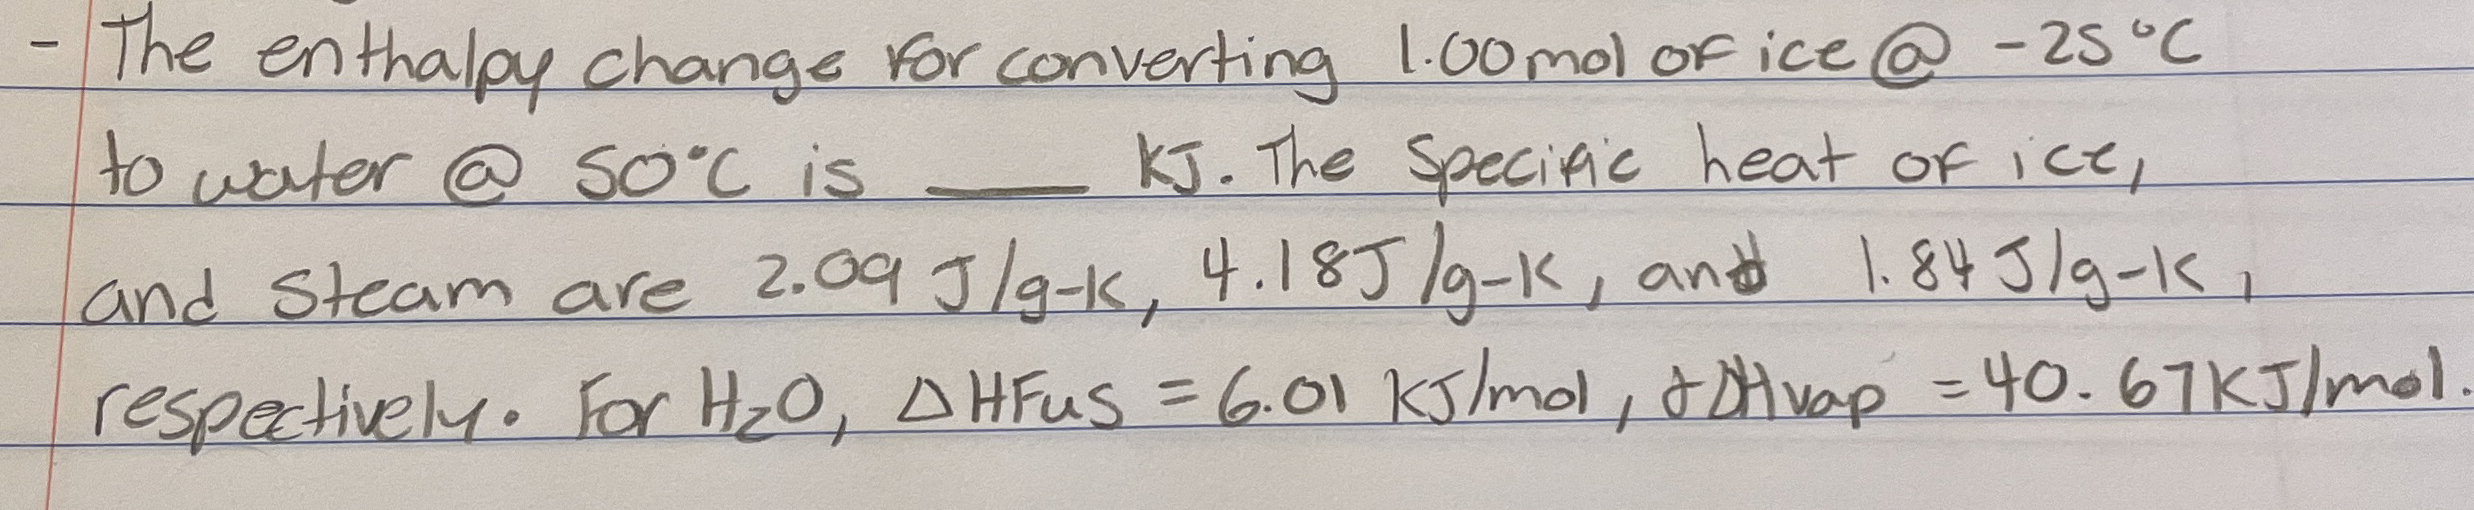 - The enthalpy change for converting 1.00 mol of ice @ -25°C
to water @ 50°C is ___ KJ. The specific heat of ice,
and steam are 2.09 J/g-K, 4.18 J/g-K, and 1.84 J/g-K,
respectively. For H₂O, ΔHFus = 6.01 KJ/mol, + ΔHvap = 40.67 KJ/mol.